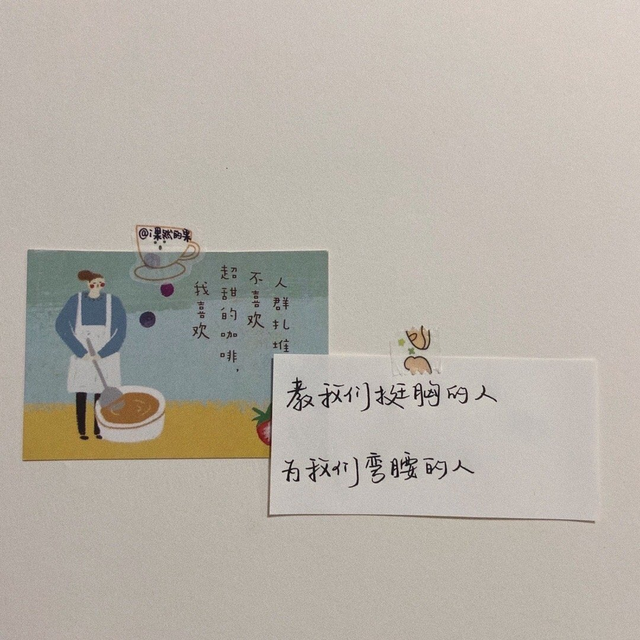 @i果然的果
人群扎堆
不喜欢
超甜的咖啡，
我喜欢
教我们挺胸的人
为我们弯腰的人